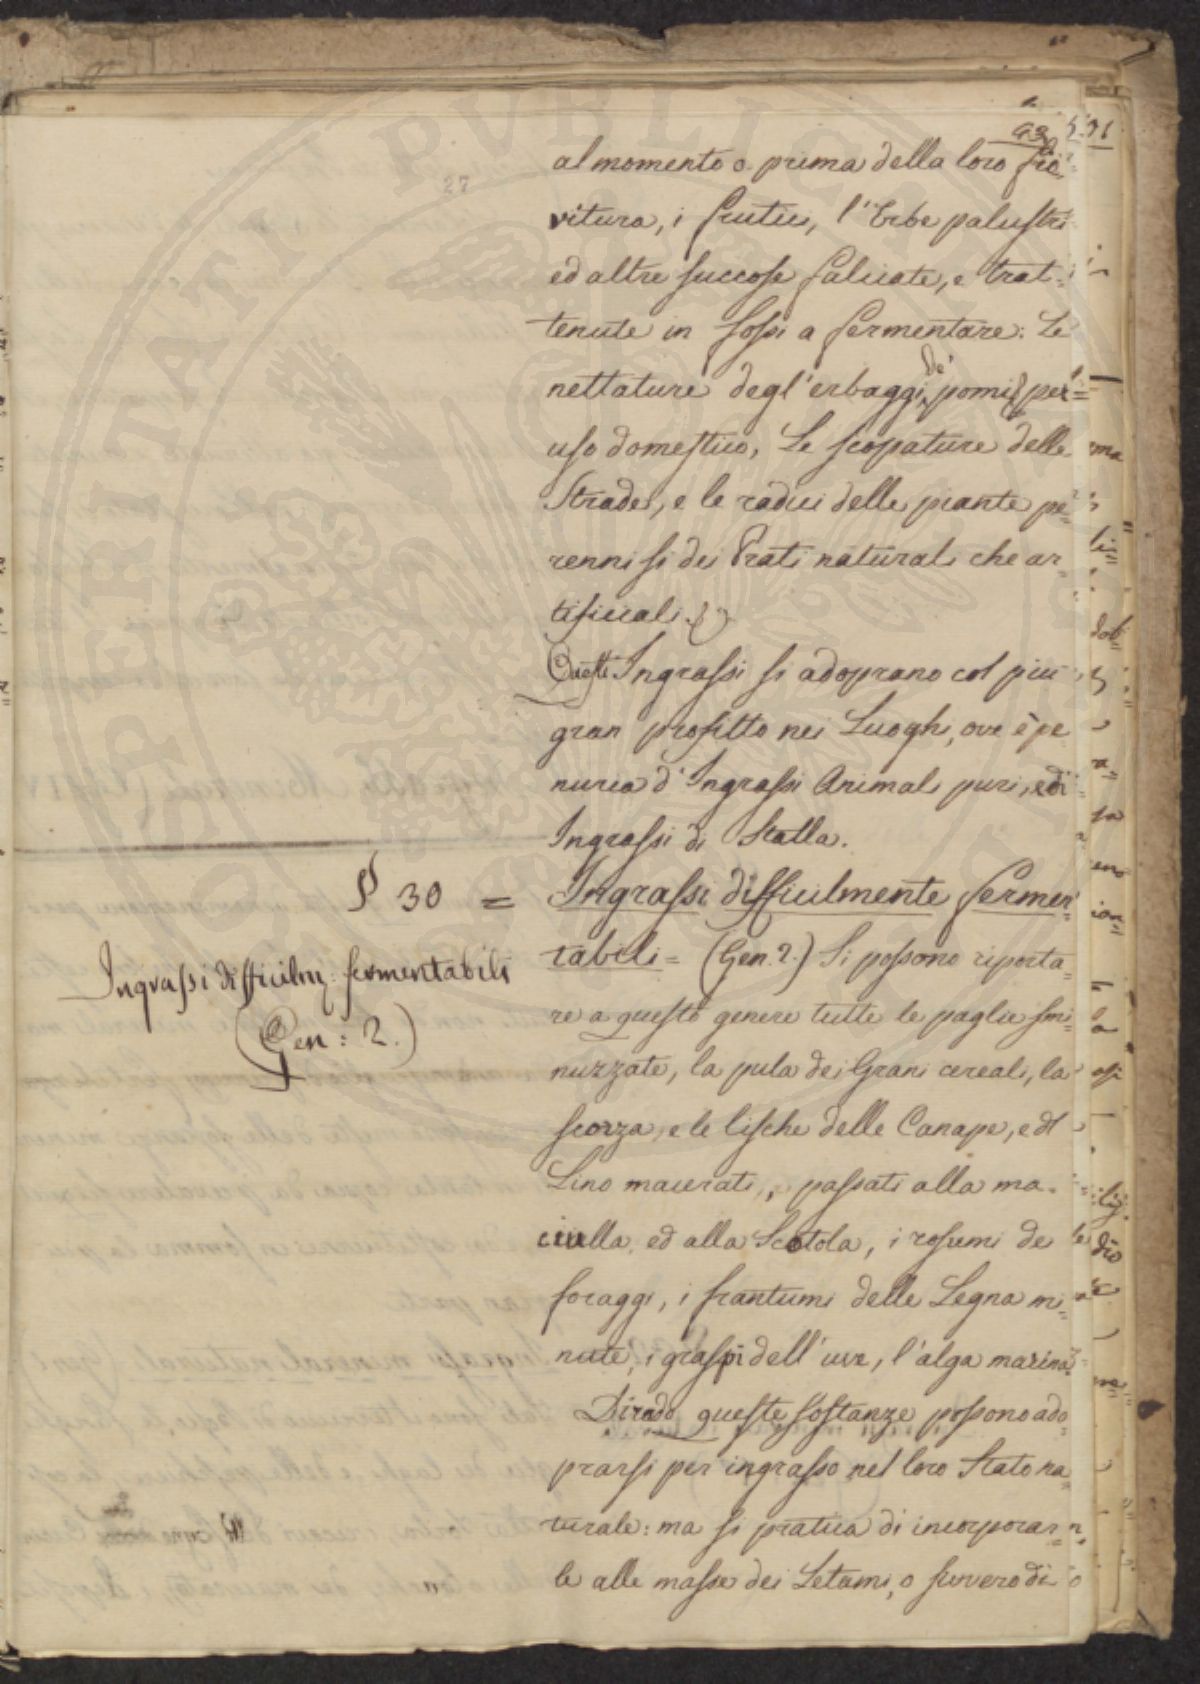 93
27
al momento o prima della loro fio=
ritura, i frutici, l'Erbe palustri
ed altre succose falciate, e trat=
tenute in fossi a fermentare: Le
nettature degl'erbaggi, de' pomi per
uso domestico, Le scopature delle
Strade, e le radici delle piante pe=
renni si dei Prati naturali che ar=
tificiali.
Questi Ingrassi si adoprano col piu
gran profitto nei Luoghi, ove è pe
nuria d'Ingrassi Animali puri, e di
Ingrassi di Stalla.
§ 30 = Ingrassi difficilmente fermen=
tabili = (Gen. 2.) Si possono riporta=
Ingrassi difficilm: fermentabili
(Gen: 2.)
re a questo genere tutte le paglie smi=
nuzzate, la pula dei Grani cereali, la
scorza, e le lische delle Canape, e del
Lino macerati, passati alla ma=
ciulla, ed alla Scotola, i rosumi de
foraggi, i frantumi delle Legna mi=
nute, i graspi dell'uve, l'alga marina.
Dirado queste sostanze possono ado=
prarsi per ingrasso nel loro Stato na
turale: ma si pratica di incorporar=
le alle masse dei Letami, o servero di